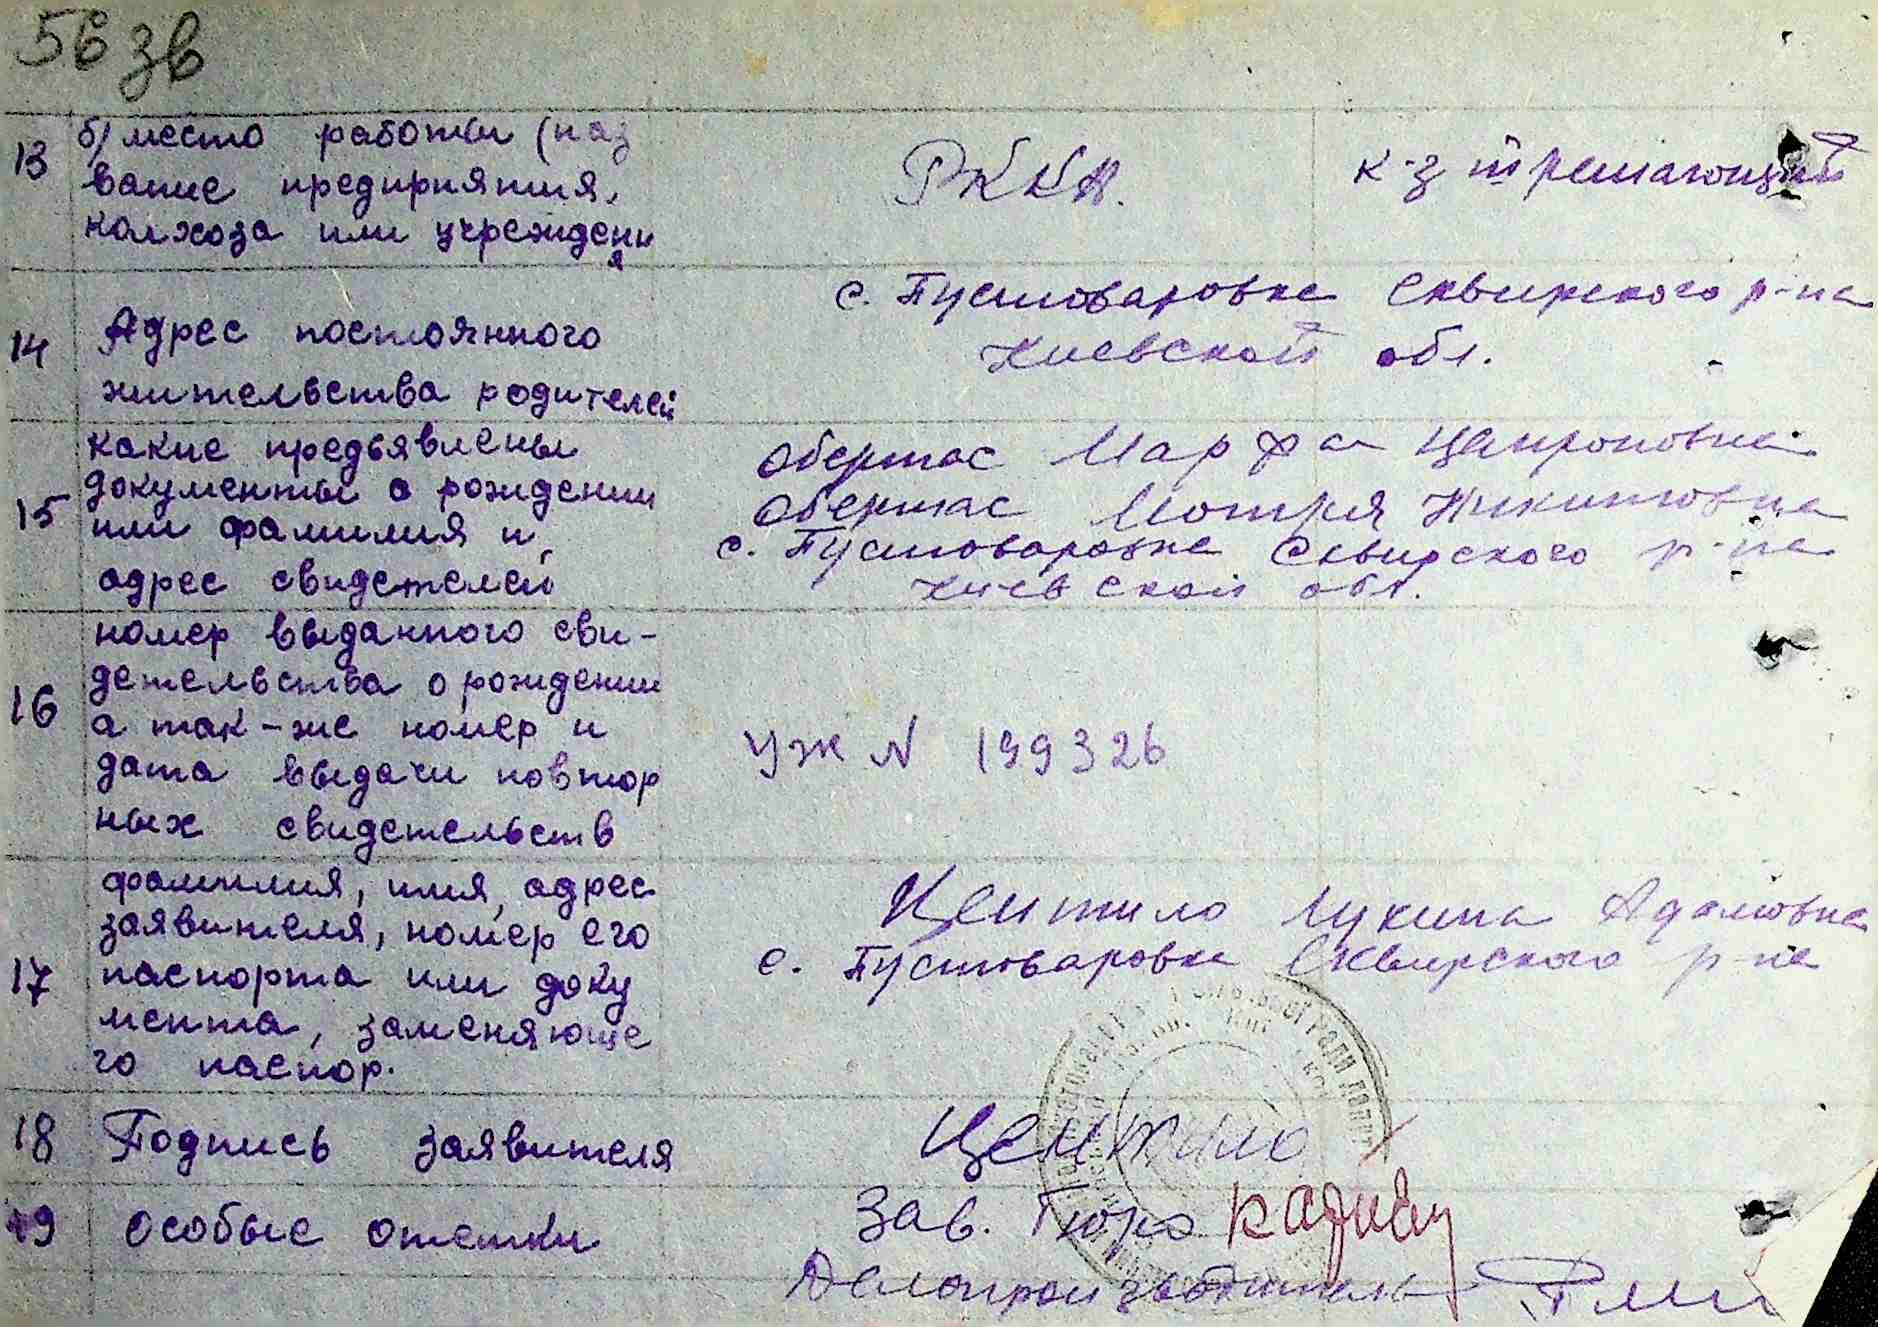 56 зв
13 б) место работы (наз
вание предприятия,
колхоза или учрежден
я
РККА. к-з III решающий
14 Адрес постоянного
жительства родителей
с. Пустоваровка Сквирского р-на
Киевской обл.
15 какие предьявлены
документы о рождении
или фамилия и
адрес свидетелей
Обертас Марфа
Обертас Мотря Никитовна
с. Пустоваровка Сквирского р-на
Киевской обл.
16 номер выданного сви-
детельства о рождении
а так-же номер и
дата выдачи повтор
ных свидетельств
УЖ N 199326
17 фамилия, имя, адрес
заявителя, номер его
паспорта или доку
мента, заменяюще
го паспор.
Центило Лукина Адамовна
с. Пустоваровка Сквирского р-на
18 Подпись заявителя
Центило
19 особые отетки
Зав. Бюро
Делопроизводитель